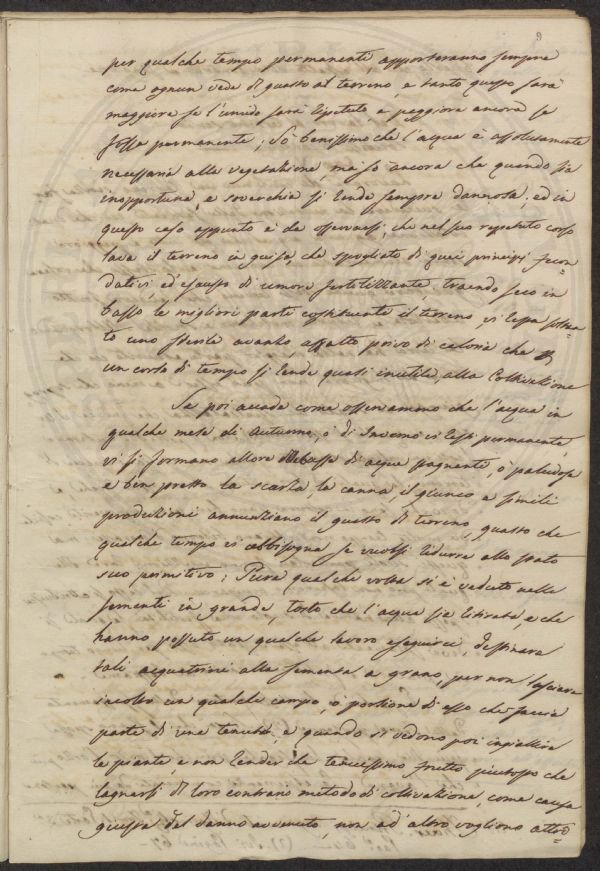 9
per qualche tempo permanenti, apporteranno sempre
come ognun vede di guasto al terreno, e tanto questo sarà
maggiore se l'umido sarà ripetuto, e peggiore ancora se
fosse permanente; Sò benissimo che l'acqua è assolutamente
necessaria alla vegetazione ma sò ancora che quando sia
inopportuna, e soverchia si rende sempre dannosa; ed in
questo caso appunto è da osservarsi, che nel suo ripetuto corso
lava il terreno in guisa, che spogliato di quei principj fecon=
dativi, ed esausto di umore fertilizzante, traendo seco in
basso le migliori parti costituenti il terreno, vi resta soltan=
to uno sterile avanzo, affatto privo di caloria che
un corso di tempo si rende quasi inutile, alla Coltivazione
Se poi accada come osservammo che l'acqua in
qualche mese di Autunno, ò di Inverno vi resti permanente,
vi si formano allora di acqua stagnante, ò paludosa
e ben presto la scarza, la canna, il giunco e simili
produzioni annunziano il guasto di terreno, guasto che
qualche tempo vi abbisogna se vuolsi ridurre allo stato
suo primitivo; Pure qualche volta si è veduto nelle
sementi in grande, tosto che l'acqua sie ritirata, e che
hanno possuto un qualche lavoro eseguirci, destinare
tali acquatrini alla sementa a grano, per non lasciare
incolto un qualche campo, ò porzione di esso che faccia
parte di una tenuta, e quando si vedono poi ingiallire
le piante, e non render che tenuissimo frutto piuttosto che
lagnarsi di loro contrario metodo di coltivazione, come causa
giusta del danno avvenuto, non ad altro vogliono attri=